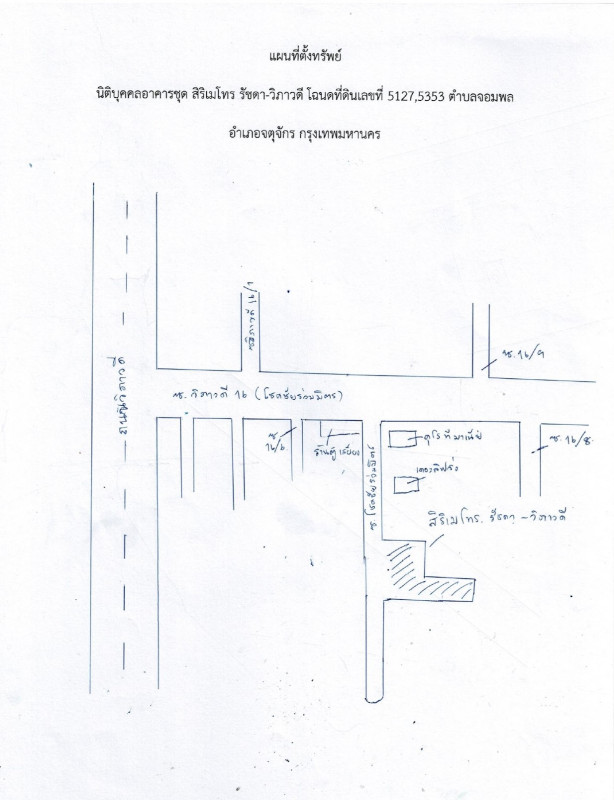 แผนที่ตั้งทรัพย์
นิติบุคคลอาคารชุด สิริเมโทร รัชดา-วิภาวดี โฉนดที่ดินเลขที่ 5127,5353 ตำบลจอมพล
อำเภอจตุจักร กรุงเทพมหานคร
ซ.วิภาวดี 16/7
ซ. 16/9
ถนนวิภาวดี
ซ. วิภาวดี 16 (โชคชัยร่วมมิตร)
ซ. 16/6
ซ. โชคชัยร่วมมิตร
ซ. 16/8
สิริเมโทร. รัชดา - วิภาวดี